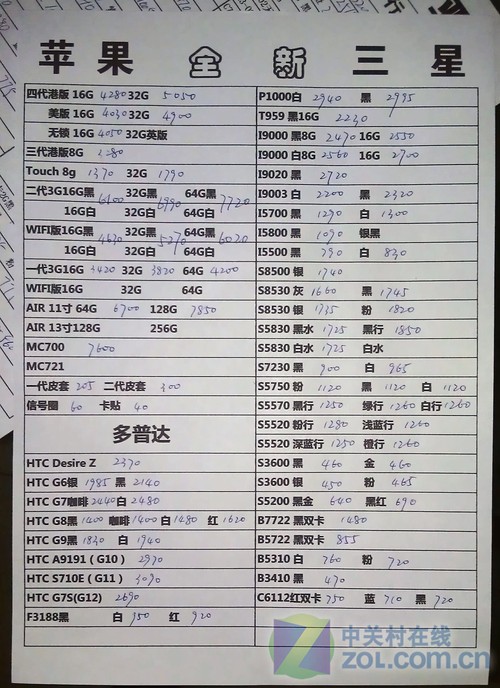 苹果 全新 三星
四代港版 16G 4280 32G 5050
美版 16G 4030 32G 4900
无锁 16G 4050 32G英版
三代港版8G 3280
Touch 8g 1370 32G 1790
二代3G16G黑 6100 32G黑 6990 64G黑 7720
16G白 32G白 64G白
WIFI版16G黑 4630 32G黑 5270 64G黑 6020
16G白 32G白 64G白
一代3G16G 3420 32G 3820 64G 4200
WIFI版16G 32G 64G
AIR 11寸 64G 6700 128G 7850
AIR 13寸128G 256G
MC700 7600
MC721
一代皮套 205 二代皮套 300
信号圈 60 卡贴 40
多普达
HTC Desire Z 2370
HTC G6银 1985 黑 2140
HTC G7咖啡 2440 白 2480
HTC G8黑 1400 咖啡 1400 白 1480 红 1620
HTC G9黑 1830 白 1940
HTC A9191（G10） 2970
HTC S710E（G11） 3090
HTC G7S(G12) 2690
F3188黑 白 950 红 920
P1000白 2940 黑 2995
T959 黑16G 2230
I9000 黑8G 2470 16G 2550
I9000 白8G 2560 16G 2700
I9020 黑 2720
I9003 白 2200 黑 2320
I5700 黑 1290 白 1300
I5800 黑 1090 银黑
I5500 黑 790 白 830
S8500 银 1740
S8530 灰 1660 黑 1745
S8530 银 1735 粉 1820
S5830 黑水 1725 黑行 1850
S5830 白水 1725 白水
S7230 黑 900 白 965
S5750 粉 1120 黑 1120 白 1120
S5570 黑行 1250 绿行 1260 白行 1260
S5520 粉行 1280 浅蓝行
S5520 深蓝行 1250 橙行
S3600 黑 460 金 460
S3600 银 450 粉 465
S5200 黑金 640 黑红 690
B7722 黑双卡 1480
B5722 黑双卡 855
B5310 白 760 粉 720
B3410 黑 470
C6112红双卡 750 蓝 710 黑 720
中关村在线
ZOL.COM.CN